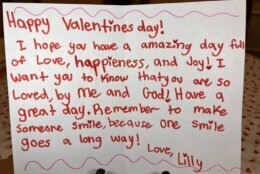 Happy Valentines day!
I hope you have a amazing day full
of Love, happieness, and Joy! I
want you to know that you are so
Loved, by Me and God! Have a
great day. Remember to make
someone smile, because one smile
goes a long way!
Love,
Lilly